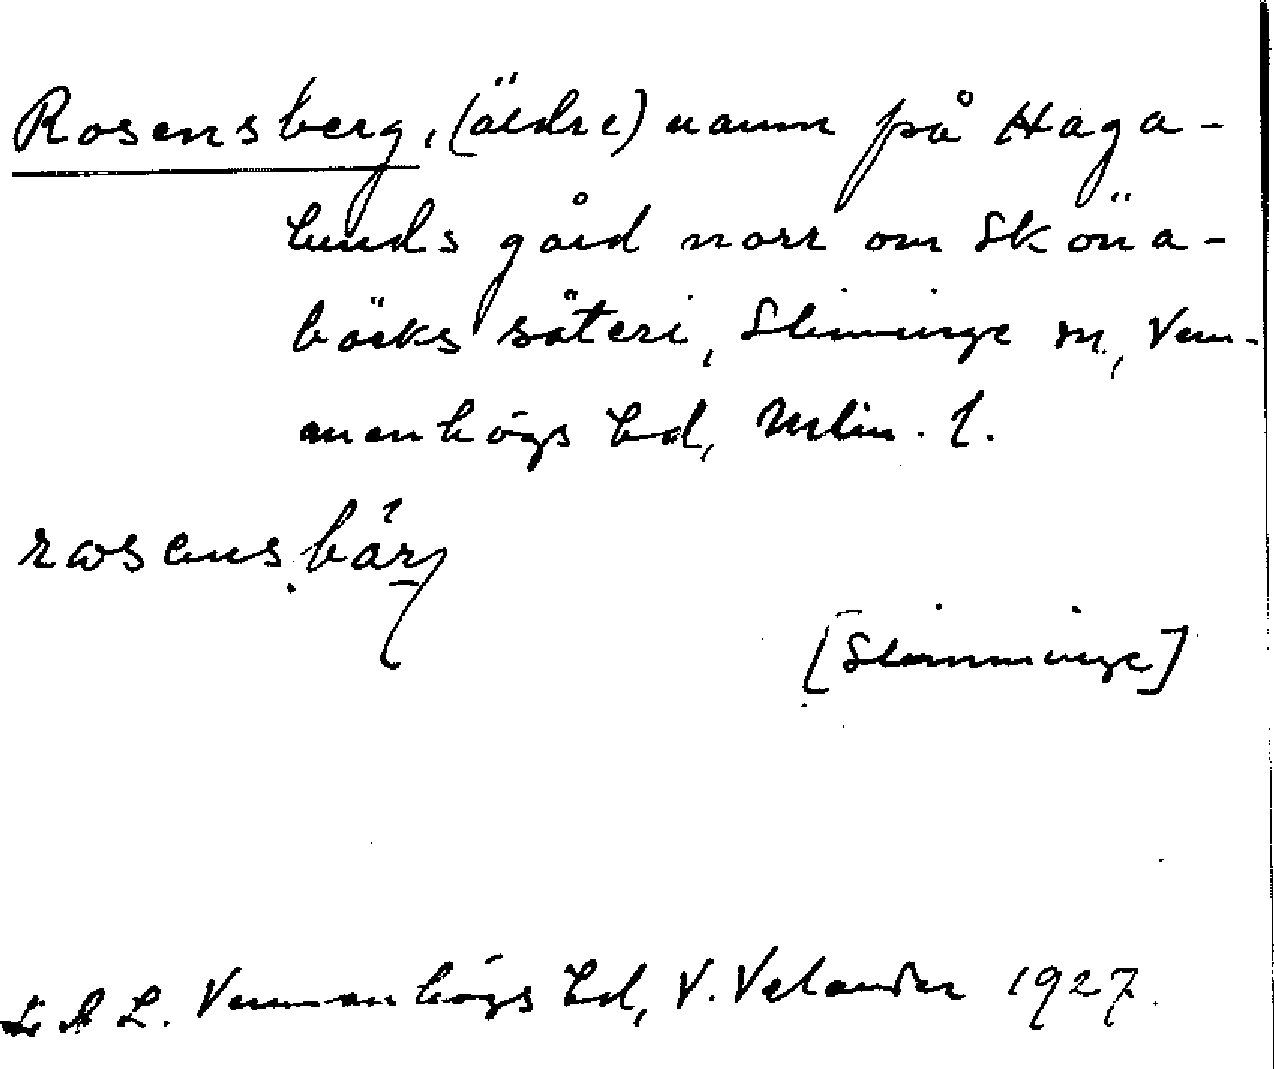 Rosensberg, (äldre) namn på Haga-
lunds gård norr om Sköna-
bäcks säteri, Slimminge sn, Vem-
menhögs hd, Mlm. l.
[Slimminge]
L A L. Vemmenhögs hd, V. Velander 1927.